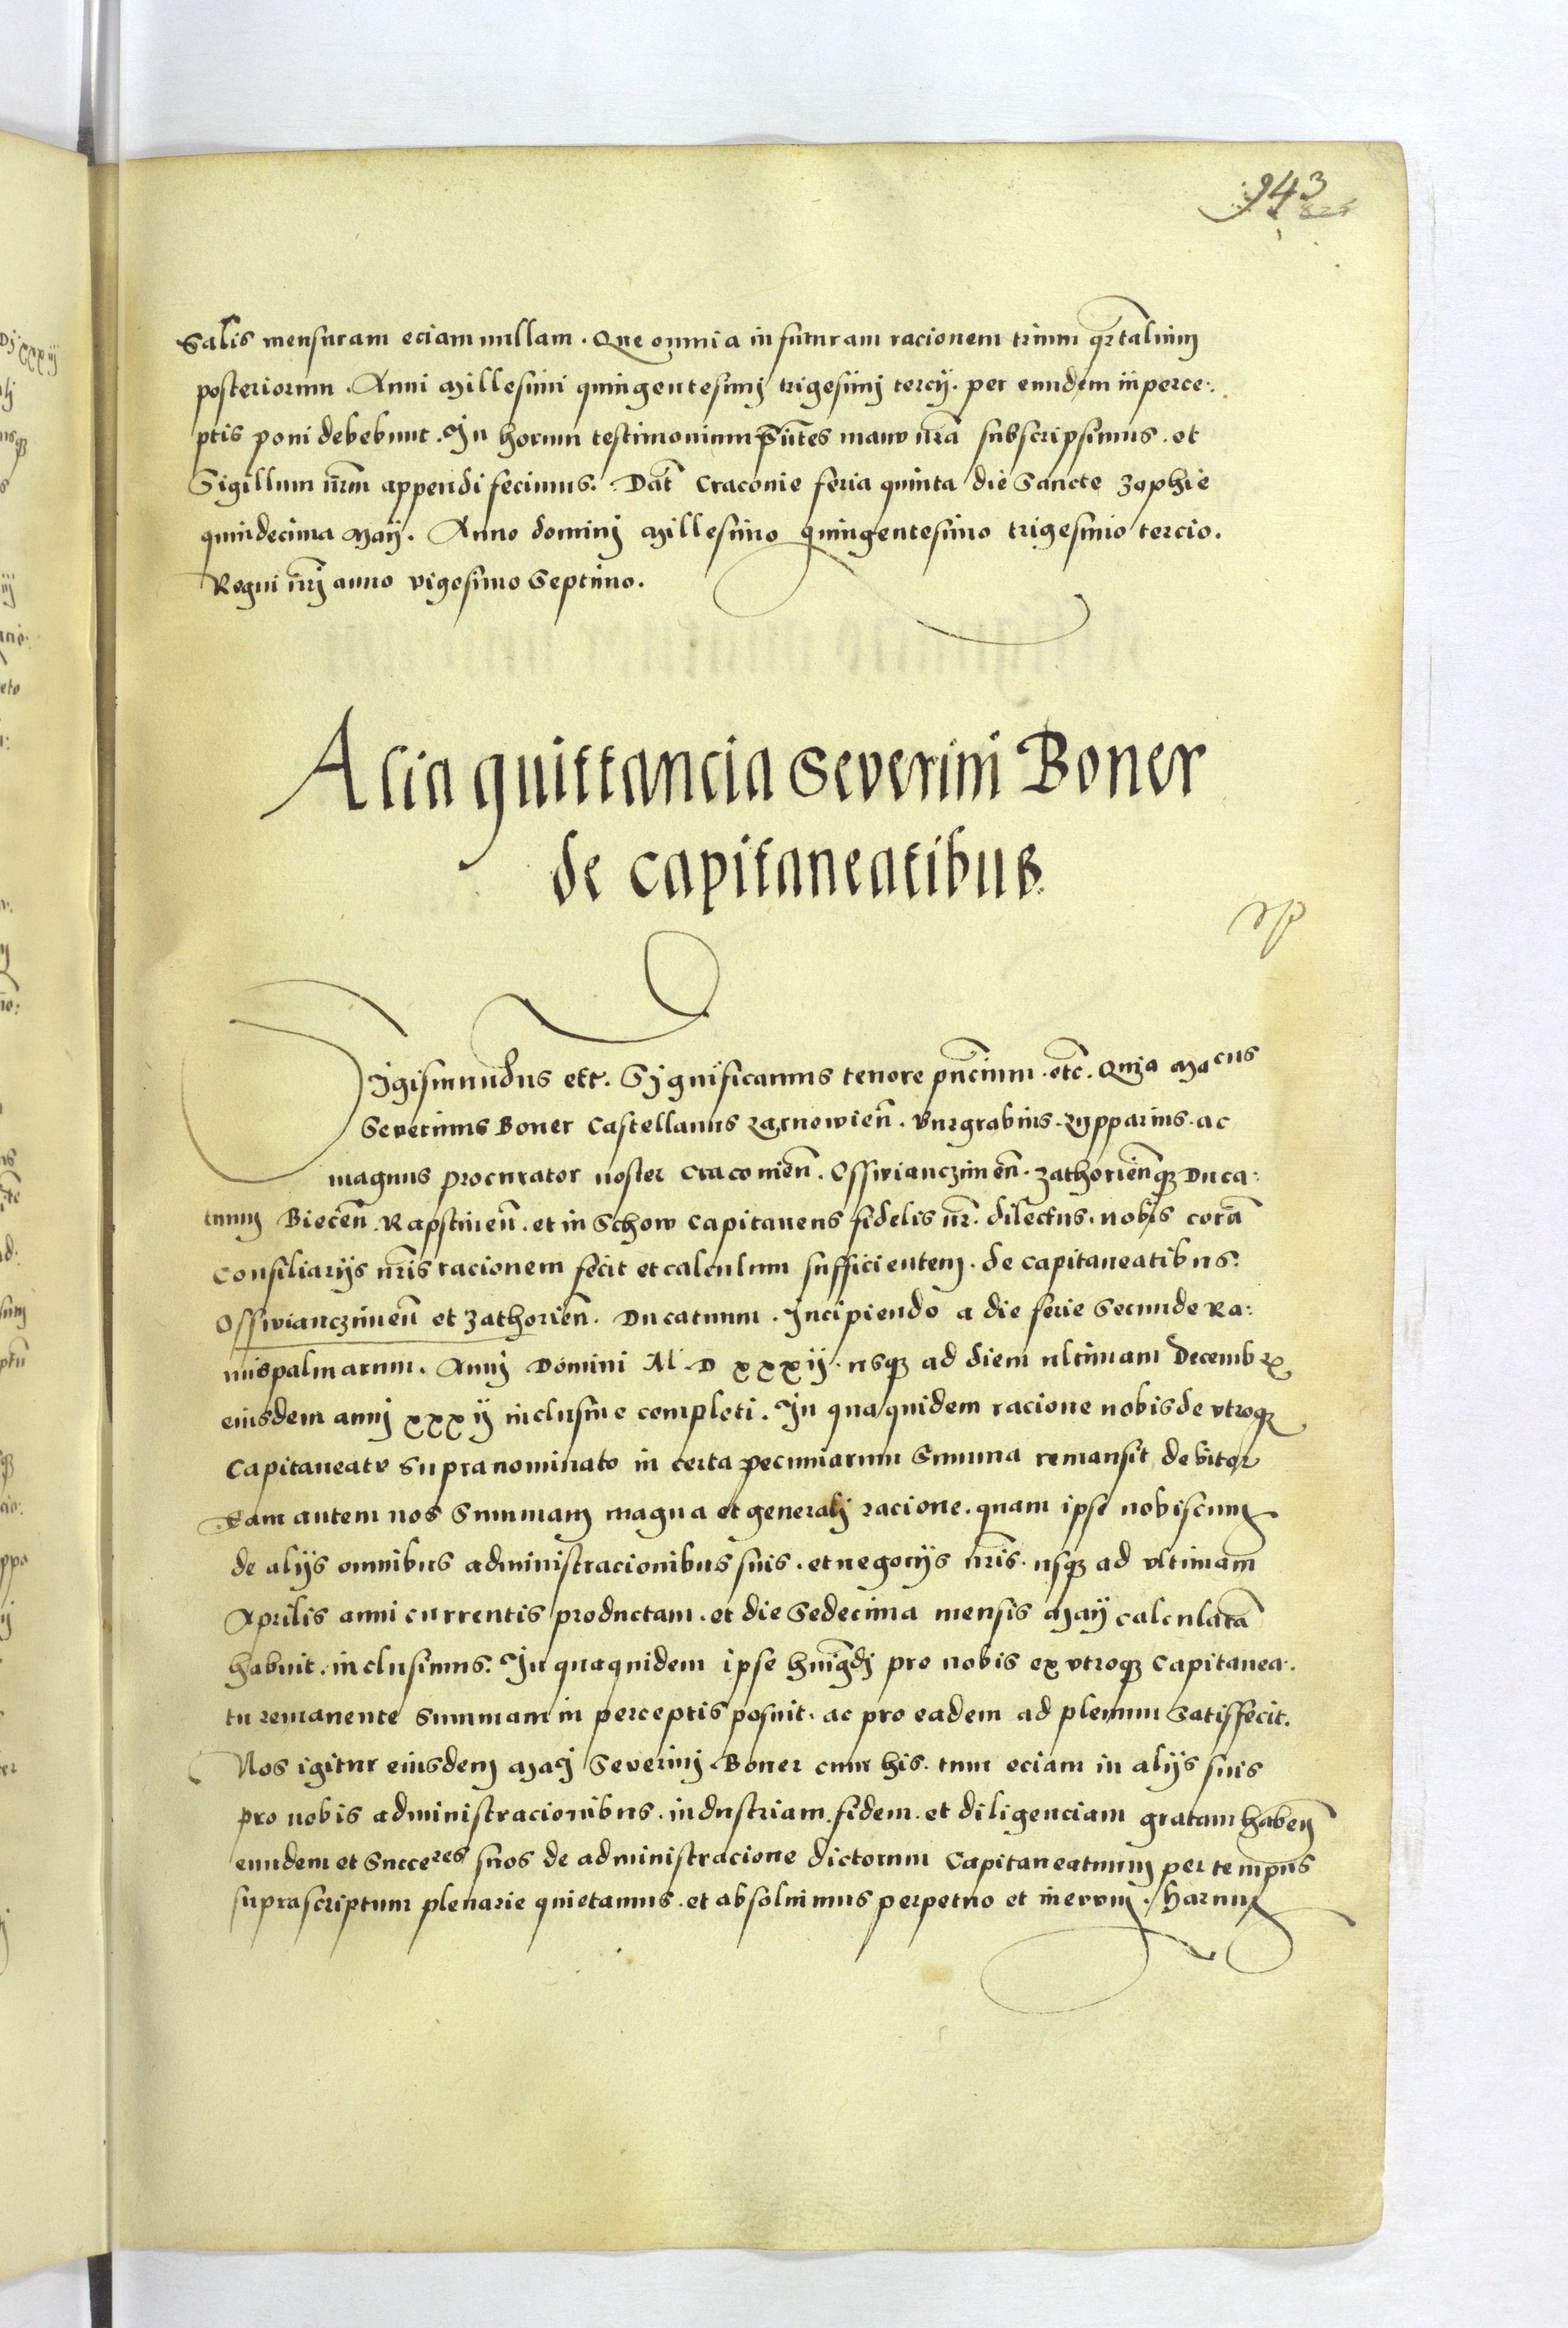 943
Salis mensuram eciam nullam. Que omnia in futuram racionem trium qrtalium
posteriorum. Anni Millesimi quingentesimj trigesimj tercij. per eundem in perce:
ptis poni debebunt. In horum testimonium pntes manu nrã subscripsimus. et
Sigillum nrm̃ appendi fecimus. Dat̃ Craconie feria quinta die Sancte Zophie
quindecima Maij. Anno dominj Millesimo quingentesimo trigesimo tercio.
Regni nrj̃ anno vigesimo Septimo.
Alia quittancia Severini Boner
de capitaneatibus.
Sigismundus ett. Significamus tenore pñcium. etc̃. Quia Mgcus
Severinus Boner Castellanus Zarnowien̄. Burgrabius. Zupparius. ac
magnus procurator noster Cracouien̄. Osswianczimen̄. Zathorien̄qꝫ Duca:
tuum Biecen̄. Rapstinen̄. et in Schow Capitaneus fidelis nr̃. dilectus. nobis corã
Consiliarijs nris̃ racionem fecit et calculum sufficientem. de capitaneatibus.
Osswianczimen̄ et Zathorien̄. Ducatuum. Incipiendo a die ferie Secunde Ra:
mispalmarum. Annj Domini M. D xxxij. usqꝫ ad diem ultimam Decembrꝭ
eiusdem annj xxxij inclusiue completi. In qua quidem racione nobis de vtroqꝫ
Capitaneatu Supranominato in certa pecuniarum Summa remansit debitor
Eam autem nos Summam magna et generalj racione. quam ipse nobiscum
de alijs omnibus administracionibus suis. et negocijs nris̃. usqꝫ ad vltimam
Aprilis anni currentis productam. et die Sedecima mensis Maij calculatã
habuit. inclusimus. In qua quidem ipse hmõgdj pro nobis ex vtroqꝫ Capitanea:
tu remanente Summam in perceptis posuit. ac pro eadem ad plenum Satisfecit.
Nos igitur eiusdem Mgcj Severinj Boner cum his. tum eciam in alijs suis
pro nobis administracionibus. industriam. fidem. et diligenciam gratam haben̄
eundem et Succeres suos de administracione dictorum Capitaneatuum per tempus
suprascriptum plenarie quietamus. et absoluimus perpetuo et in evum. Harum